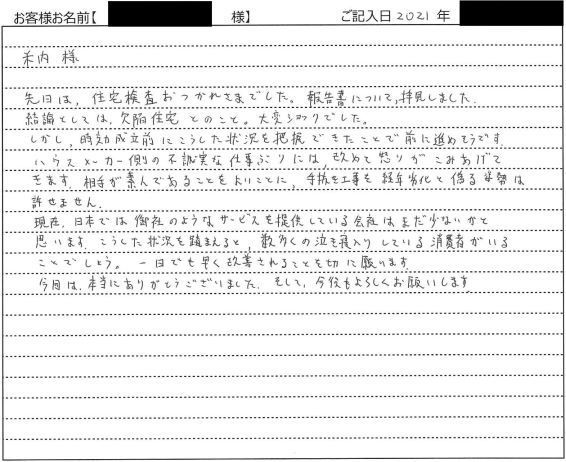 お客様お名前【 様】 ご記入日2021年
米内 様
先日は、住宅検査おつかれさまでした。報告書について、拝見しました。
結論としては、欠陥住宅とのこと。大変ショックでした。
しかし、時効成立前にこうした状況を把握できたことで前に進めそうです。
ハウスメーカー側の不誠実な仕事ぶりには、改めて怒りがこみあげて
きます。相手が素人であることをよいことに、手抜き工事を経年劣化と偽る姿勢は
許せません。
現在、日本では御社のようなサービスを提供している会社はまだ少ないかと
思います。こうした状況を踏まえると、数多くの泣き寝入りしている消費者がいる
ことでしょう。一日でも早く改善されることを切に願います。
今回は、本当にありがとうございました。そして、今後もよろしくお願いします